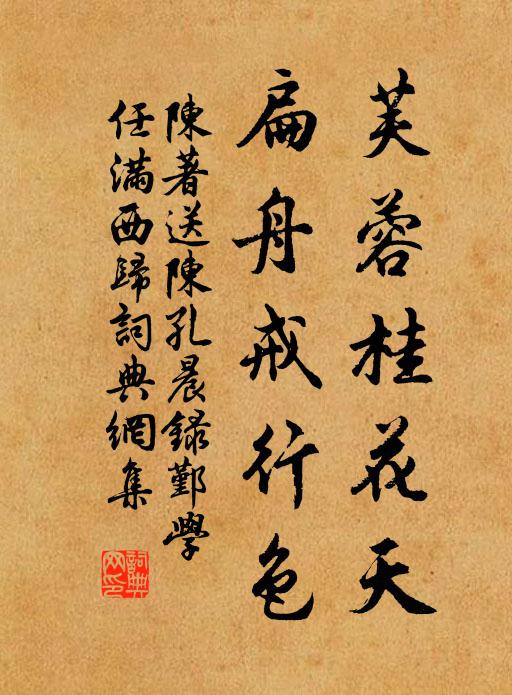 芙蓉桂花天
扁舟戒行色
陳著送陳孔晨錄鄞學
任滿西歸詞典網集
詞典网印